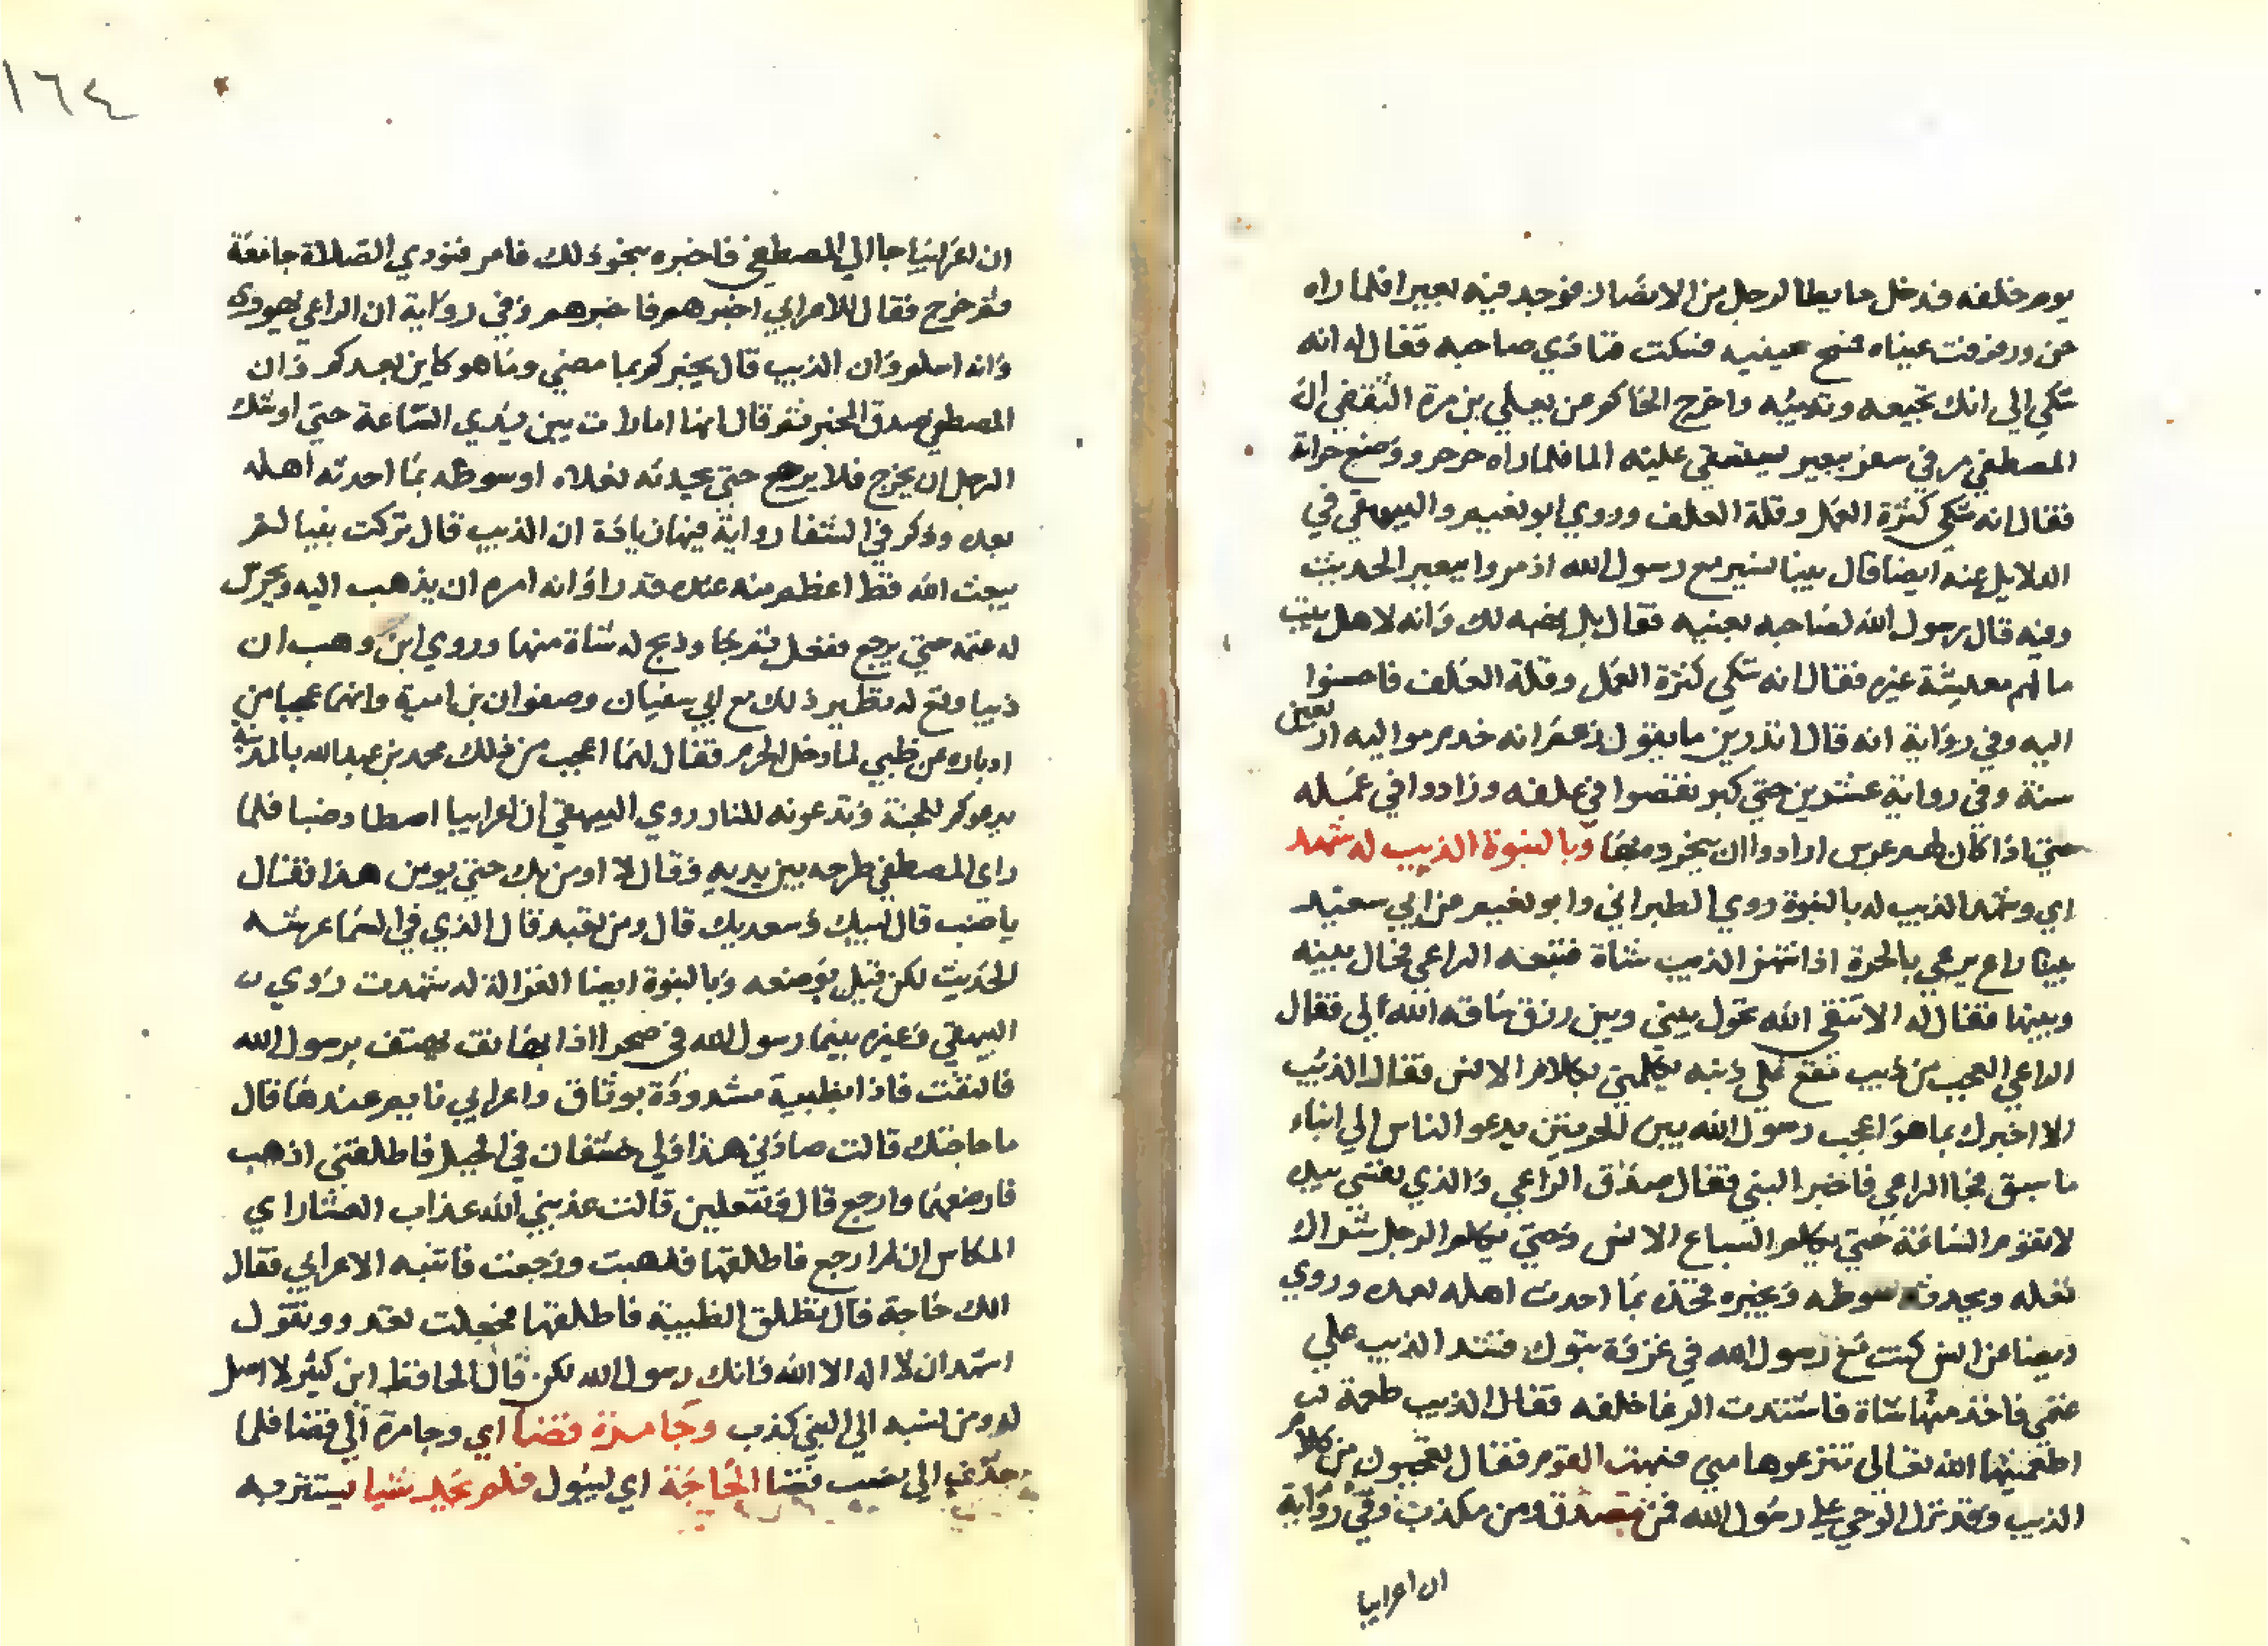 يوم خلفه فدخل حايطا لرجل من الانصار فوجد فيه بعيرا فلما راه
حن وذرفت عيناه فمسح عينيه فسكت فنادي صاحبه فقال له انه
شكي الي انك تجيعه وتدئبه واخرج الحاكم عن يعلي بن مرة الثقفي ان
المصطفي مر في سفر ببعير يستقي عليه الما فلما راه جرجر ووضع جرانه
فقال انه شكي كثرة العمل وقلة العلف وروي ابو نعيم والبيهقي في
الدلايل عنه ايضا قال بينا نسير مع رسول الله اذ مروا ببعير الحديث
وفيه قال رسول الله لصاحبه بعنيه فقال بل نهبه لك وانه لاهل بيت
ما لهم معيشة غيره فقال انه شكي كثرة العمل وقلة العلف فاحسنوا
اليه وفي رواية انه قال اتدرين ما يقول زعم انه خدم مواليه اربعين
سنة وفي رواية عشرين حتي كبر نقصوا في علفه وزادوا في عمله
حتي اذا كان لهم عرس ارادوا ان ينحروه وبالنبوة الذيب له شهد
اي وشهد الذيب له بالنبوة روي الطبراني وابو نعيم عن ابي سعيد
بينا راع يرعي بالحرة اذ انتهز الذيب شاة فتبعه الراعي فحال بينه
وبينها فقال له الا تتقي الله تحول بيني وبين رزق ساقه الله الي فقال
الراعي العجب من ذيب مقع علي ذنبه يكلمني بكلام الانس فقال الذئيب
الا اخبرك بما هو اعجب رسول الله بين الحرتين يدعو الناس الي انباء
ما سبق فجا الراعي فاخبر النبي فقال صدق الراعي والذي نفسي بيده
لا تقوم الساعة حتي يكلم السباع الانس وحتي يكلم الرجل شراك
نعله ويحدثه سوطه ويخبره فخذه بما احدث اهله بعده وروي
ايضا عن انس كنت مع رسول الله في غزوة تبوك فشد الذيب علي
غنمي فاخذ منها شاة فاشتدت الرعا خلفه فقال الذيب طعمة لي
اطعمنيها الله تعالي تنزعوها مني فبهت القوم فقال تعجبون من كلام
الذيب وقد نزل الوحي علي رسول الله فمن مصدق ومن مكذب وفي رواية
ان اعرابيا
١٦٤
ان اعرابيا جا الي المصطفي فاخبره بنحو ذلك فامر فنودي الصلاة جامعة
ثم خرج فقال للاعرابي اخبرهم فاخبرهم وفي رواية ان الراعي يهودي
وانه اسلم وان الذيب قال يخبركم بما مضي وما هو كاين بعدكم وان
المصطفي صدق الخبر ثم قال انها امارات بين يدي الساعة حتي اوشك
الرجل ان يخرج فلا يرجع حتي يحدثه نعلاه او سوطه بما احدثه اهله
بعده وذكر في الشفا رواية فيها زيادة ان الذيب قال تركت نبيا لم
يبعث الله قط اعظم منه عنده قدرا وانه امره ان يذهب اليه ويحرس
له غنمه حتي يرجع ففعل ثم جا وذبح له شاة منها وروي ابن وهب ان
ذيبا وقع له نظير ذلك مع ابي سفيان وصفوان بن امية وانهما عجبا من
ادباره عن ظبي لما دخل الحرم فقال لهما اعجب من ذلك محمد بن عبد الله بالمدينة
يدعوكم للجنة وتدعونه للنار روي البيهقي ان اعرابيا اصطاد ضبا فلما
راي المصطفي طرحه بين يديه وقال لا اومن بك حتي يومن هذا فقال
يا ضب قال لبيك وسعديك قال ومن تعبد قال الذي في السما عرشه
الحديث لكن قيل بوضعه وبالنبوة ايضا الغزالة له شهدت روي
البيهقي وغيره بينما رسول الله في صحرا اذا بهاتف يهتف يرسول الله
فالتفت فاذا بظبية مشدودة بوثاق واعرابي نايم عندها قال
ما حاجتك قالت صادني هذا ولي خشفان في الجبل فاطلقني اذهب
فارضعهما وارجع قال وتفعلين قالت عذبني الله عذاب العشار اي
المكاس ان لم ارجع فاطلقها فذهبت ورجعت فانتبه الاعرابي فقال
الك حاجة قال تطلق الظبية فاطلقها فجعلت تعدو وتقول
اشهد ان لا اله الا الله وانك رسول الله لكن قال الحافظ ابن كثير لا اصل
له ومن نسبه الي النبي كذب وجا مرة قضا اي وجا مرة الي قضا فلما
الي قضا الحاجة اي ليبول فلم يجد شيا يستتر به